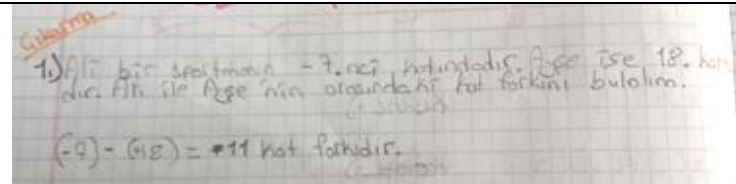 Çıkarma
1.) Ali bir apartmanın -7. nci katındadır. Ayşe ise 18. kat
dır. Ali ile Ayşe'nin arasındaki kat farkını bulalım.
(-7) - (-18) = +11 kat farkıdır.